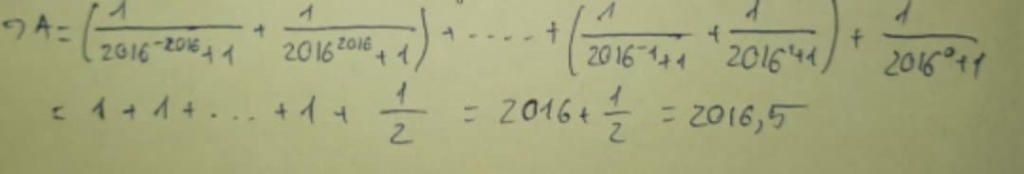 ⇒ A = (1/(2016^-2016 + 1) + 1/(2016^2016 + 1)) + ..... + (1/(2016^-1 + 1) + 1/(2016^1 + 1)) + 1/(2016^0 + 1)
= 1 + 1 + ... + 1 + 1/2 = 2016 + 1/2 = 2016,5